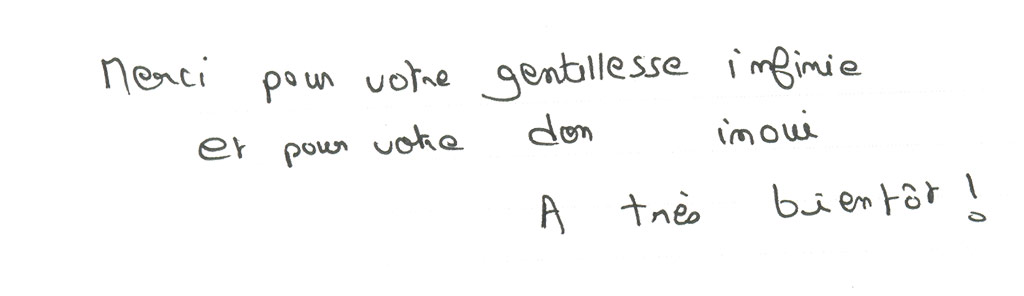 Merci pour votre gentillesse infinie
et pour votre don inoui
A très bientôt !